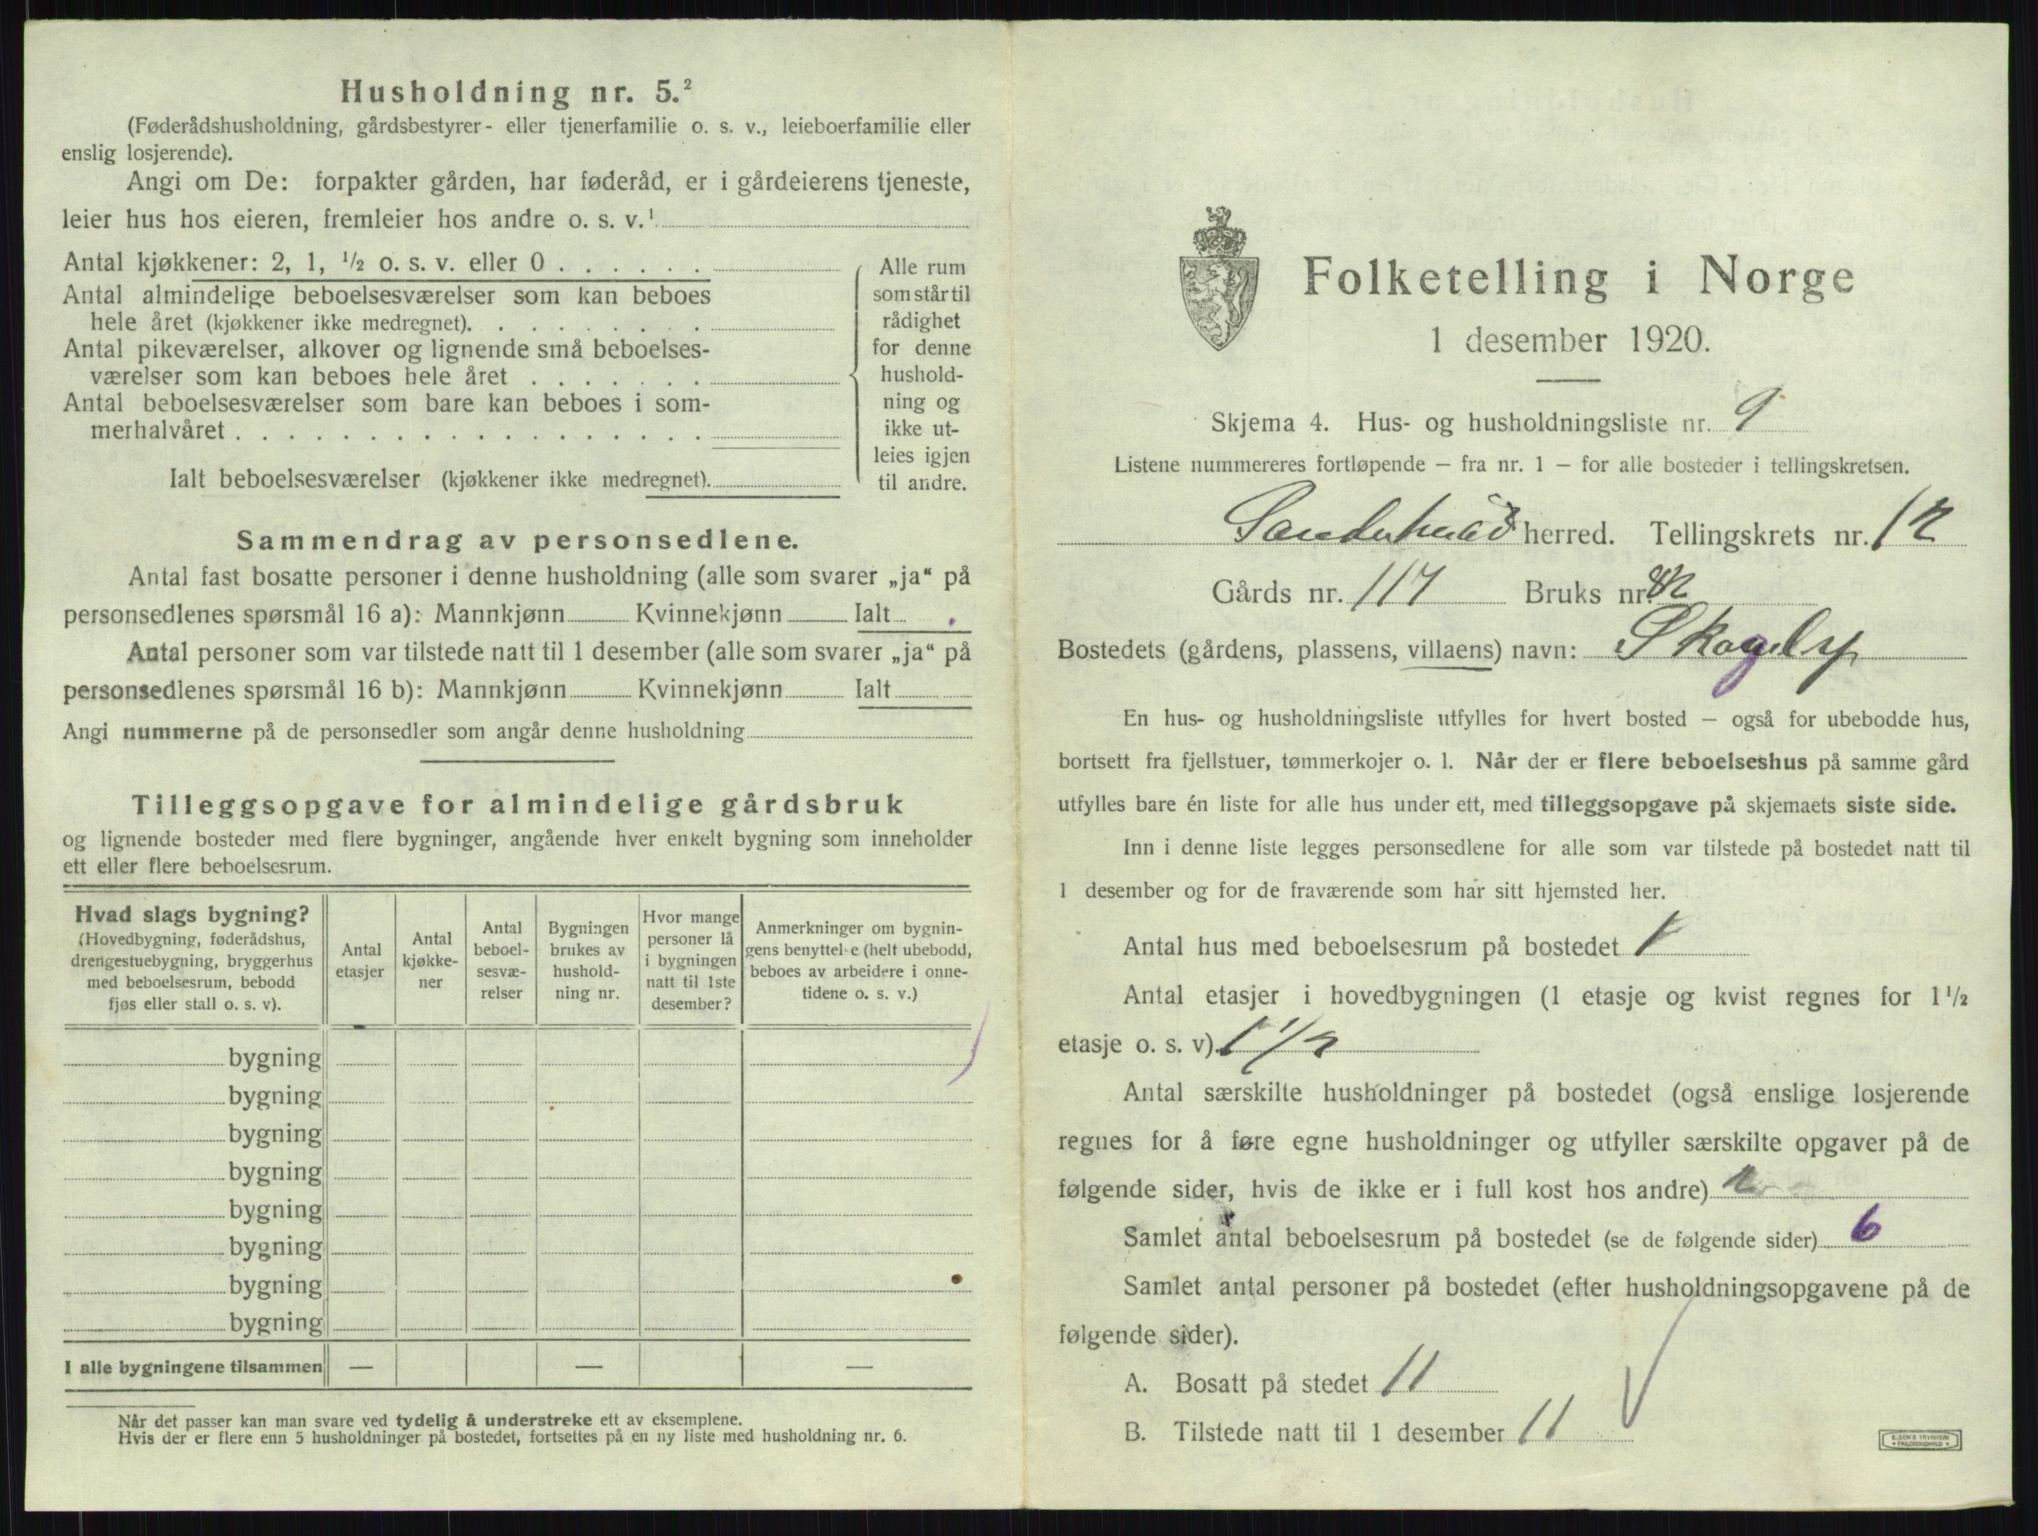 Husholdning nr. 5.²
(Føderådshusholdning, gårdsbestyrer- eller tjenerfamilie o. s. v., leieboerfamilie eller
enslig losjerende).
Angi om De: forpakter gården, har føderåd, er i gårdeierens tjeneste,
leier hus hos eieren, fremleier hos andre o. s. v.¹
Antal kjøkkener: 2, 1, ½ o. s. v. eller 0 . . . . . .
Antal almindelige beboelsesværelser som kan beboes
hele året (kjøkkener ikke medregnet). . . . . . . . .
Antal pikeværelser, alkover og lignende små beboelses-
værelser som kan beboes hele året . . . . . . .
Antal beboelsesværelser som bare kan beboes i som-
merhalvåret . . . . . . . . . . . . . . . . . .
Ialt beboelsesværelser (kjøkkener ikke medregnet).
Alle rum
som står til
rådighet
for denne
hushold-
ning og
ikke ut-
leies igjen
til andre.
Sammendrag av personsedlene.
Antal fast bosatte personer i denne husholdning (alle som svarer „ja“ på
personsedlenes spørsmål 16 a): Mannkjønn Kvinnekjønn Ialt
Antal personer som var tilstede natt til 1 desember (alle som svarer „ja“ på
personsedlenes spørsmål 16 b): Mannkjønn Kvinnekjønn Ialt
Angi nummerne på de personsedler som angår denne husholdning
Tilleggsopgave for almindelige gårdsbruk
og lignende bosteder med flere bygninger, angående hver enkelt bygning som inneholder
ett eller flere beboelsesrum.
Hvad slags bygning?
(Hovedbygning, føderådshus,
drengestuebygning, bryggerhus
med beboelsesrum, bebodd
fjøs eller stall o. s. v).
Antal
etasjer
Antal
kjøkke-
ner
Antal
beboel-
sesvæ-
relser
Bygningen
brukes av
hushold-
ning nr.
Hvor mange
personer lå
i bygningen
natt til 1ste
desember?
Anmerkninger om bygnin-
gens benyttelse (helt ubebodd,
beboes av arbeidere i onne-
tidene o. s. v.)
bygning
bygning
bygning
bygning
bygning
bygning
bygning
bygning
I alle bygningene tilsammen — — —
Når det passer kan man svare ved tydelig å understreke ett av eksemplene.
Hvis der er flere enn 5 husholdninger på bostedet, fortsettes på en ny liste med husholdning nr. 6.
Folketelling i Norge
1 desember 1920.
Skjema 4. Hus- og husholdningsliste nr. 9
Listene nummereres fortløpende — fra nr. 1 — for alle bosteder i tellingskretsen.
herred. Tellingskrets nr. 12
Gårds nr. 117 Bruks nr.
Bostedets (gårdens, plassens, villaens) navn: Skogly
En hus- og husholdningsliste utfylles for hvert bosted — også for ubebodde hus,
bortsett fra fjellstuer, tømmerkojer o. l. Når der er flere beboelseshus på samme gård
utfylles bare én liste for alle hus under ett, med tilleggsopgave på skjemaets siste side.
Inn i denne liste legges personsedlene for alle som var tilstede på bostedet natt til
1 desember og for de fraværende som har sitt hjemsted her.
Antal hus med beboelsesrum på bostedet 1
Antal etasjer i hovedbygningen (1 etasje og kvist regnes for 1½
etasje o. s. v). 1 1/2
Antal særskilte husholdninger på bostedet (også enslige losjerende
regnes for å føre egne husholdninger og utfyller særskilte opgaver på de
følgende sider, hvis de ikke er i full kost hos andre) 2
Samlet antal beboelsesrum på bostedet (se de følgende sider) 6
Samlet antal personer på bostedet (efter husholdningsopgavene på de
følgende sider).
A. Bosatt på stedet 11
B. Tilstede natt til 1 desember 11